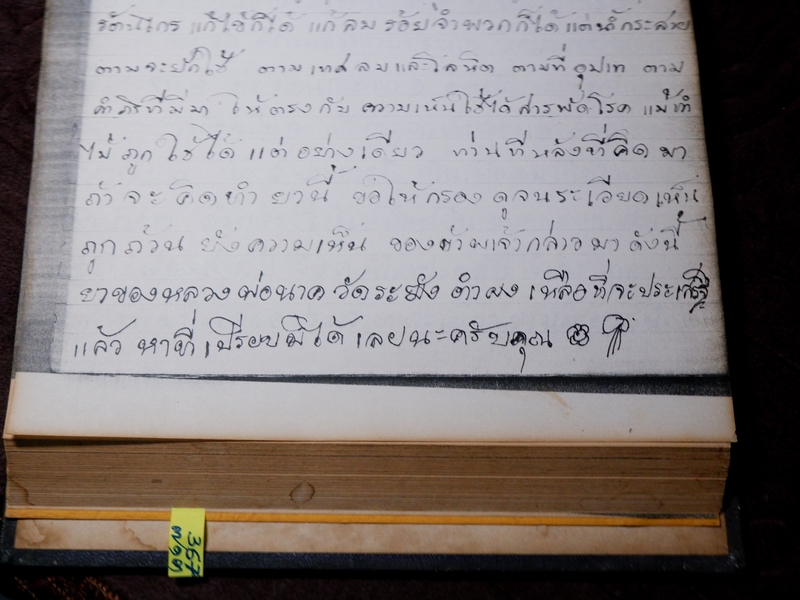 แก้ไข้ก็ได้ แก้ลมร้อยจำพวกก็ได้ แต่น้ำกระสาย
ตามจะยักใช้ ตามเทศ ลมและโลหิต ตามที่ ตาม
คำภีร์ที่มีมา ให้ตรงกับ ความเห็นใช้ได้สารพัดโรค แม้ทำ
ไม่ถูก ใช้ได้ แต่อย่างเดียว ท่านที่หลังที่คิดมา
ถ้าจะคิดทำ ยานี้ ขอให้กรองดูจนระเอียดเห็น
ถูกถ้วน ยังความเห็น ของข้าพเจ้ากล่าวมาดังนี้
ยาของหลวงพ่อนาค วัดระฆัง ตำผง เหลือที่จะประเสริฐ
แล้ว หาที่เปรียบมิได้เลยนะครับคุณ
367